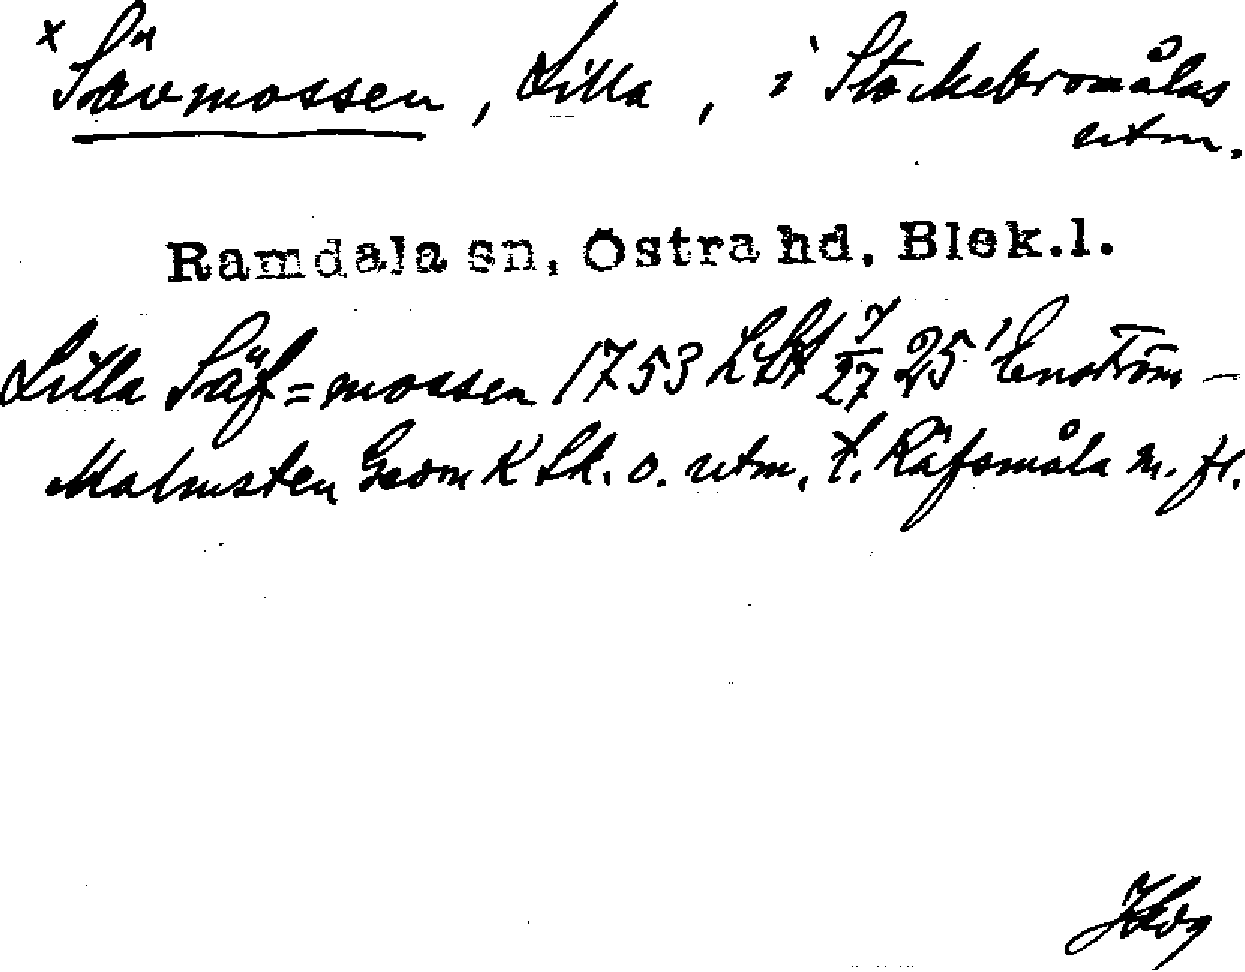 x Sävmossen, Lilla, i Stockebromålas
utm.
Ramdala sn, Östra hd, Blek.l.
Lilla Säf=mossen 1753 LSt 7/27 25 Enström-
Malmsten Geom K Sk. o. utm. t. Räfsmåla m. fl.